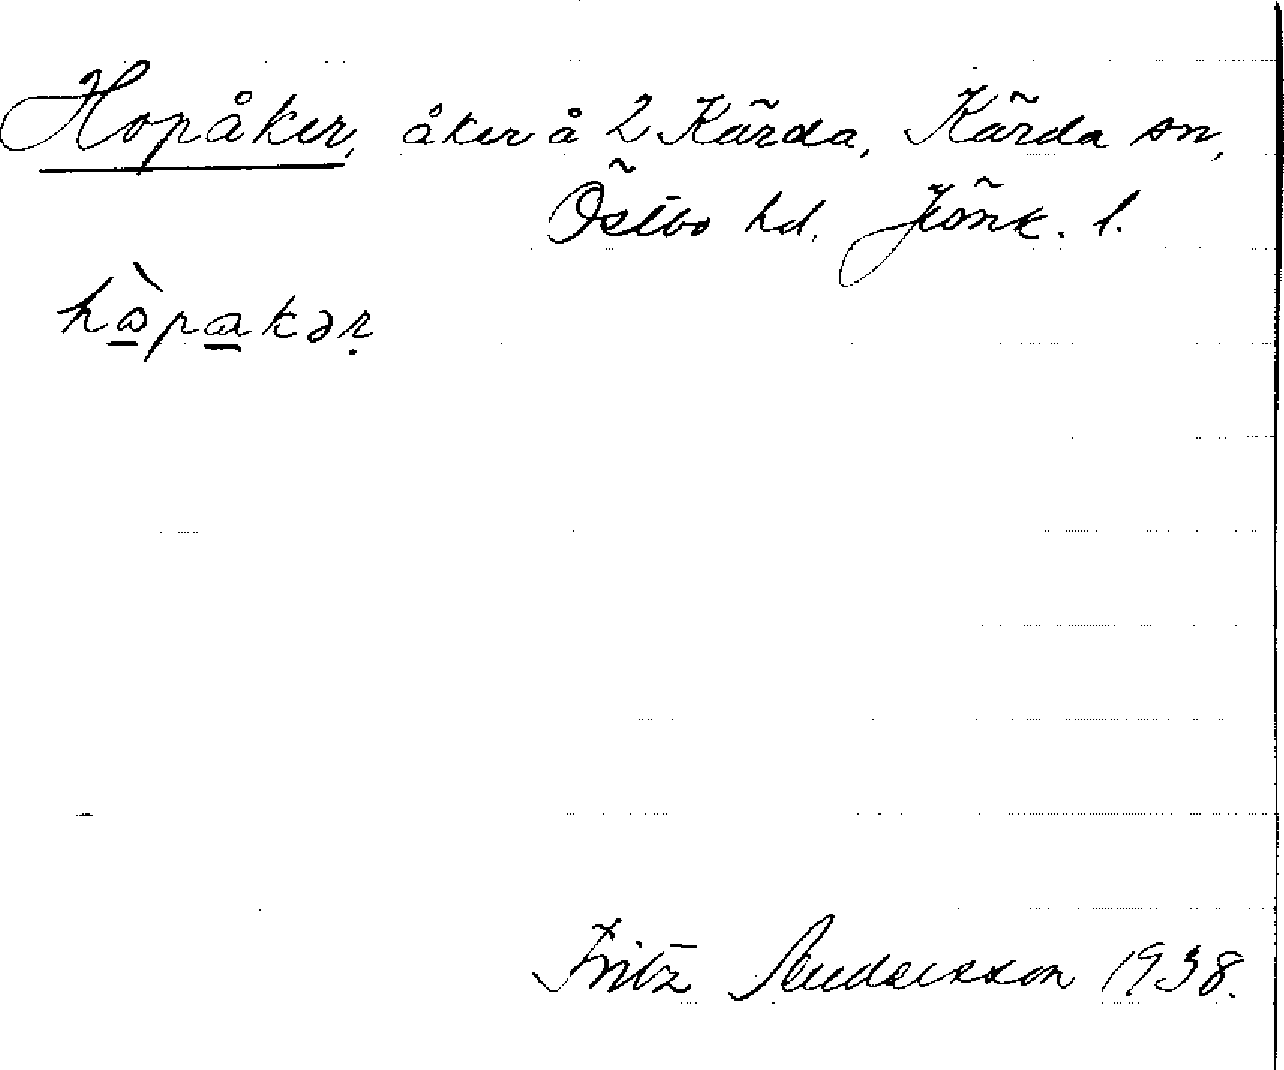 Hopåker, åker å 2 Kärda, Kärda sn,
Östbo hd. Jönk. l.
hòpakər
Fritz Andersson 1938.